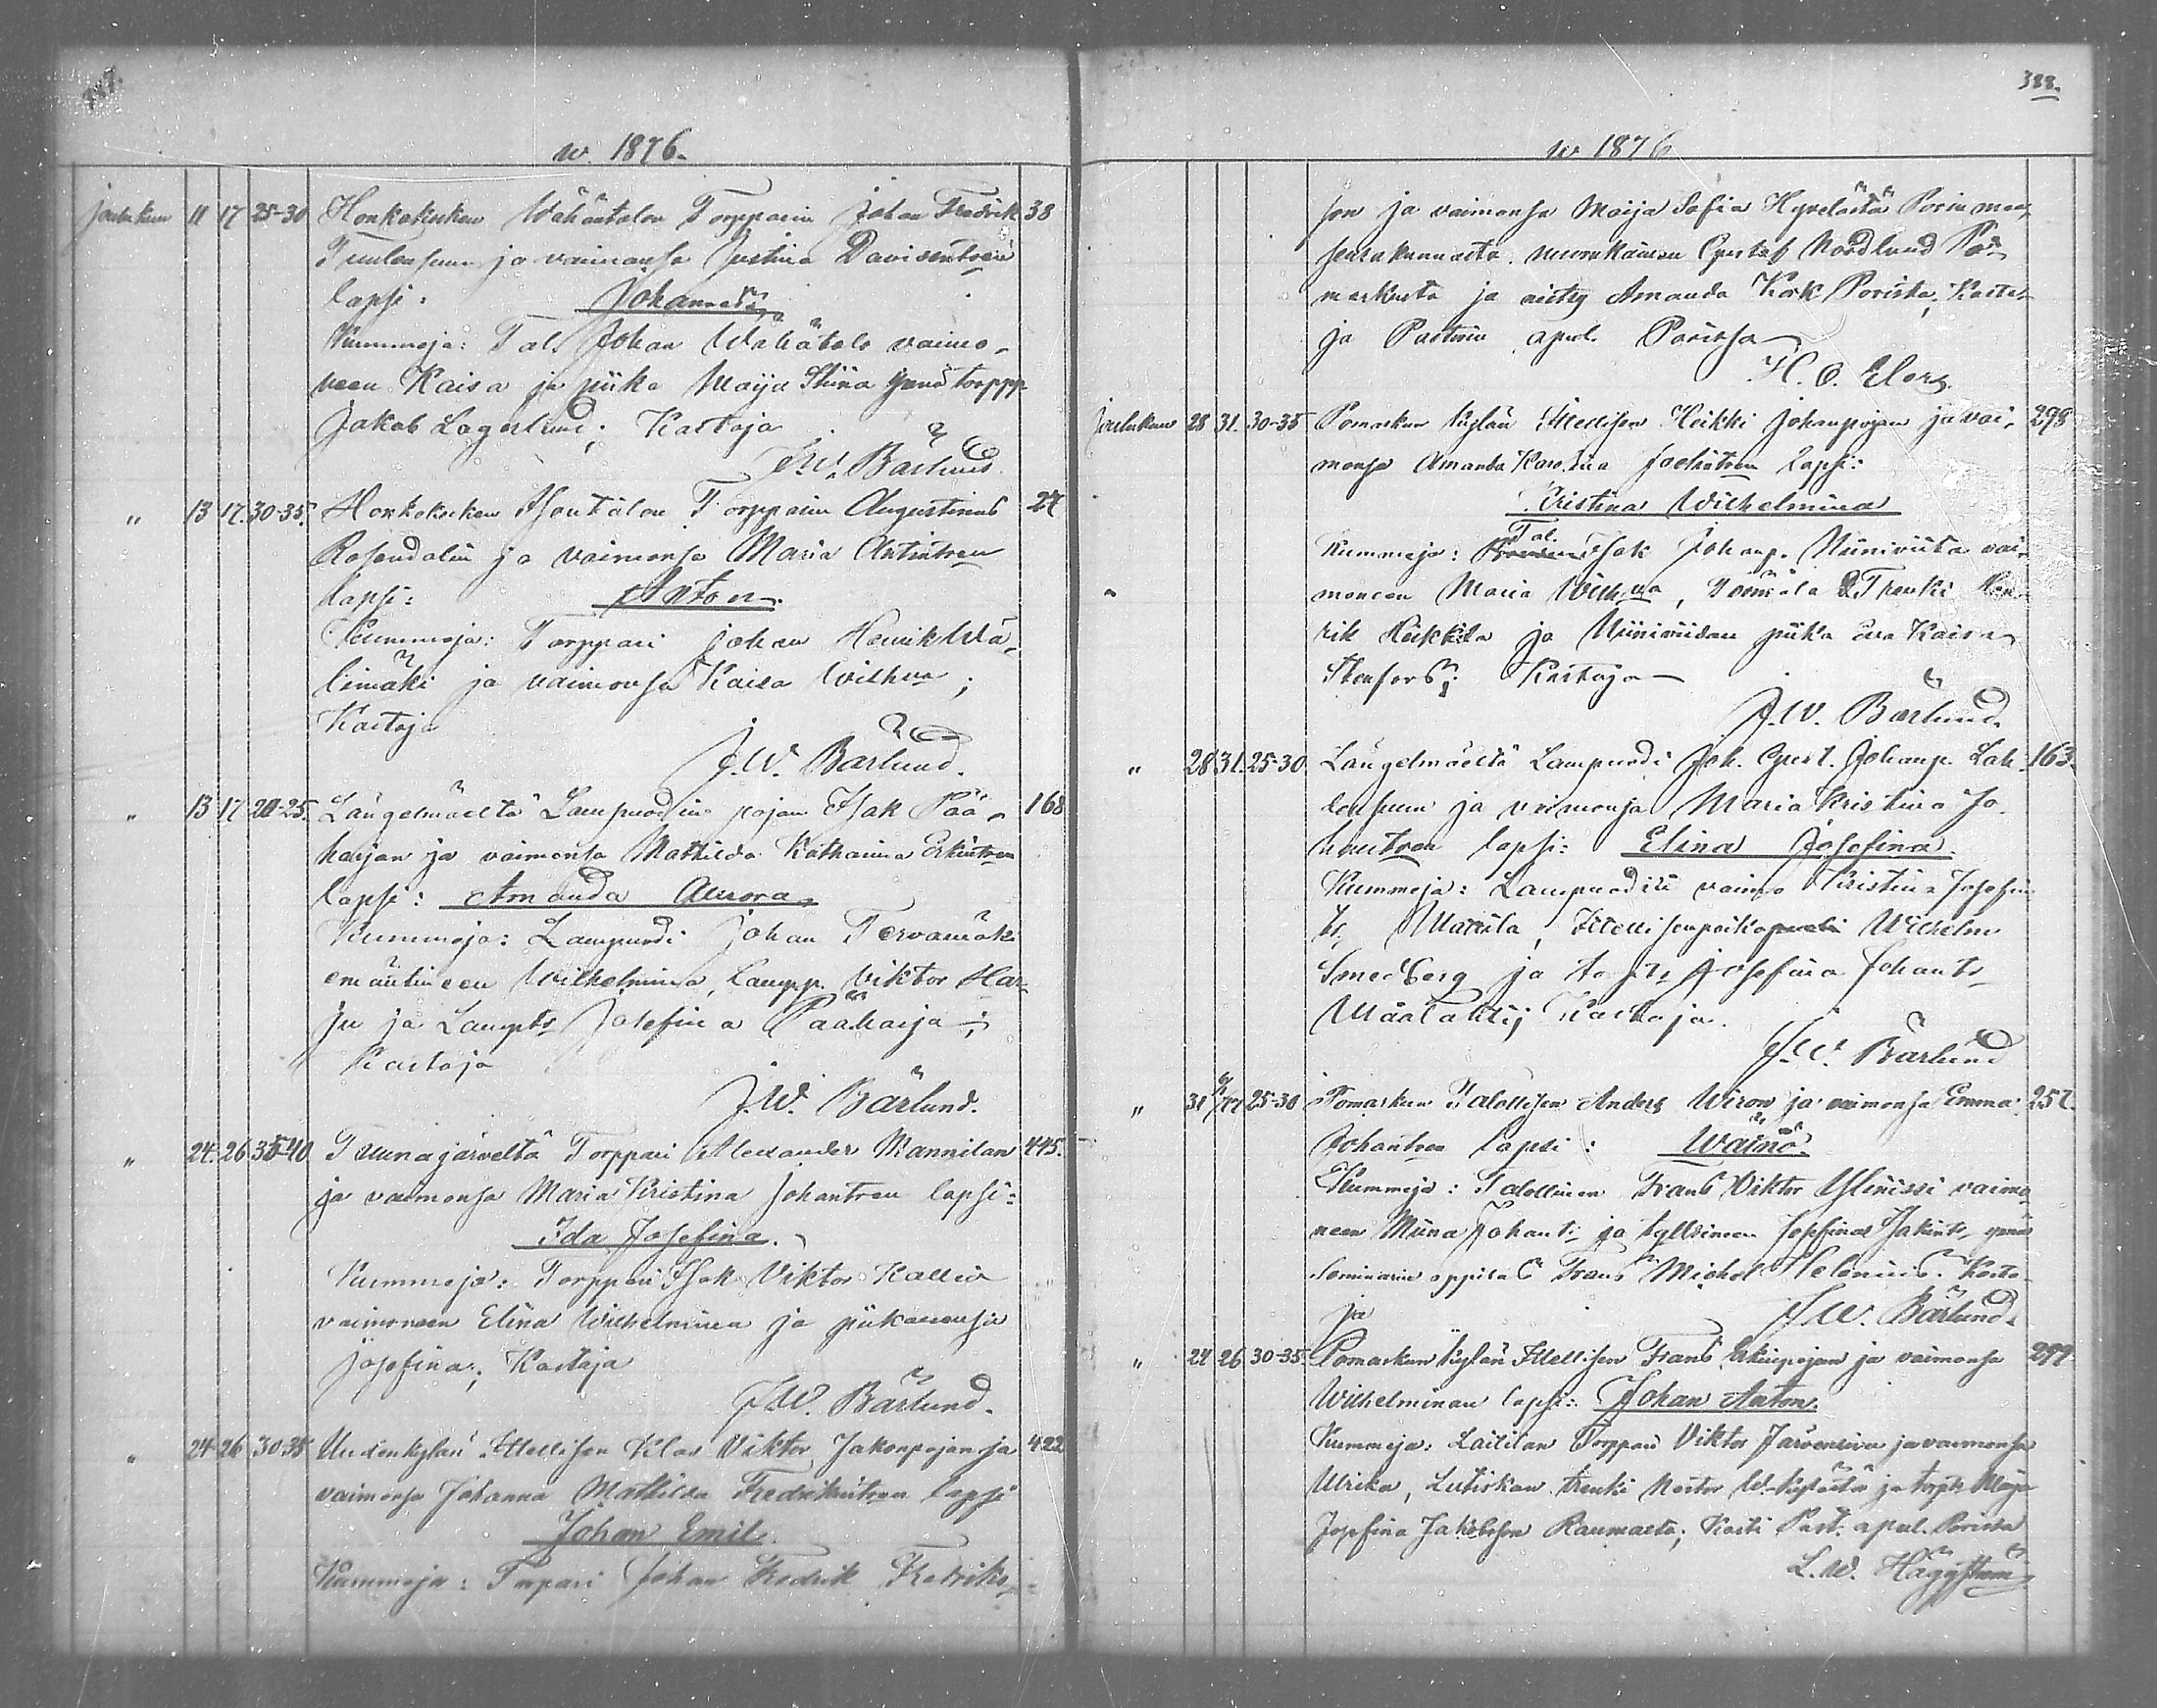 387.
w. 1876.
Joulukuu 11 17 25-30 Honkakosken Wähäntalon Torpparin Johan Fredrik 38
Tuulensuun ja vaimonsa Justina Davidentren
lapsi: Johannes
Kummeja: Tal. Johan Wähätalo vaimo-
neen Kaisa ja piika Maija Stiina ynnä torpp
Jakob Lagerlund; Kastaja
J.W. Bärlund.
" 13 17. 30-35. Honkakosken Isontalon Torpparin Augustinus 24
Rosendalin ja vaimonsa Maria Antintren
lapsi: Anton.
Kummeja: Torppari Johan Henrik Wä-
limäki ja vaimonsa Kaisa Wilhna;
Kastaja
J.W. Bärlund.
" 13 17 20-25. Längelmäeltä Lampuodin pojan Isak Pää- 168
harjan ja vaimonsa Mathilda Katharina Erkintren
lapsi: Amanda Aurora
Kummeja: Lampuodi Johan Tervamäki
emäntineen Wilhelmina, Lampp. Viktor Har-
ju ja Lampts Josefina Pääharja;
Kastaja
J.W. Bärlund.
" 24. 26 35-40 Tuunajärveltä Torppari Alexander Mannilan 445.
ja vaimonsa Maria Kristina Johantren lapsi:
Ida Josefina.
Kummeja: Torppari Isak Viktor Kallio
vaimoneen Elina Wilhelmina ja piikanensa
Josefina; Kastaja
J.W. Bärlund.
" 24 26 30-35 Uudenkylän Itellisen Klas Viktor Jakonpojan ja 422
vaimonsa Johanna Mathilda Fredrikintren lapsi
Johan Emil.
Kummeja: Torpari Johan Fredrik Fredriks-
388.
w 1876
son ja vaimonsa Maija Sofia Hyvelästä Porin maa-
seurakunnasta. nuorukainen Gustaf Nordlund Po-
markusta ja neitsy Amanda Kock Porista; Kasta-
ja Pastorin apul. Porissa
H. O. Elers.
Joulukuu 28 31. 30-35 Pomarkun kylän Itellisen Heikki Johanpojan ja vai- 298
monsa Amanda Karolina Joelintren lapsi:
Kristina Wilhelmina
Kummeja: Tal. Isak Johanp. Niiniviita vai-
moneen Maria Wilhna, Trenki Hen-
rik Heikkilä ja Niiniviidan piika Eva Kaisa
Stenfors; Kastaja
J.W. Bärlund.
" 28 31. 25-30 Längelmäeltä Lampuodi Joh. Gust. Johanp. Lah- 163.
densuun ja vaimonsa Maria Kristina Jo-
hantren lapsi: Elina Josefina.
Kummeja: Lampuodin vaimo Kristina Josefin
Mattila, Itellisenpoika Wilhelm
Smedberg ja Josefina Johants
Määlahti; Kastaja.
J.W. Bärlund
" 31 25-30 Pomarkun Talollisen Anders Wiron ja vaimonsa Emma 257.
Johantren lapsi: Wäinö.
Kummeja: Talollinen Frans Viktor Ylinissi vaimo-
neen Miina Johant: ja kyllvinen Josefina Isakint. ynnä
Seminarin oppilas Frans Michel Helenius. Kasta-
ja J.W. Bärlund.
" 24 26 30-35 Pomarkun kylän Itellisen Frans Erkinpojan ja vaimonsa 299
Wilhelminan lapsi: Johan Anton.
Kummeja: Laitilan Torppari Viktor Järvensivu ja vaimonsa
Ulrika, trenki Nestor W.-kylästä ja torpts Maja
Josefina Jakobsson Raumasta; Kasti Past. apul. Porissa
L.W. Häggström